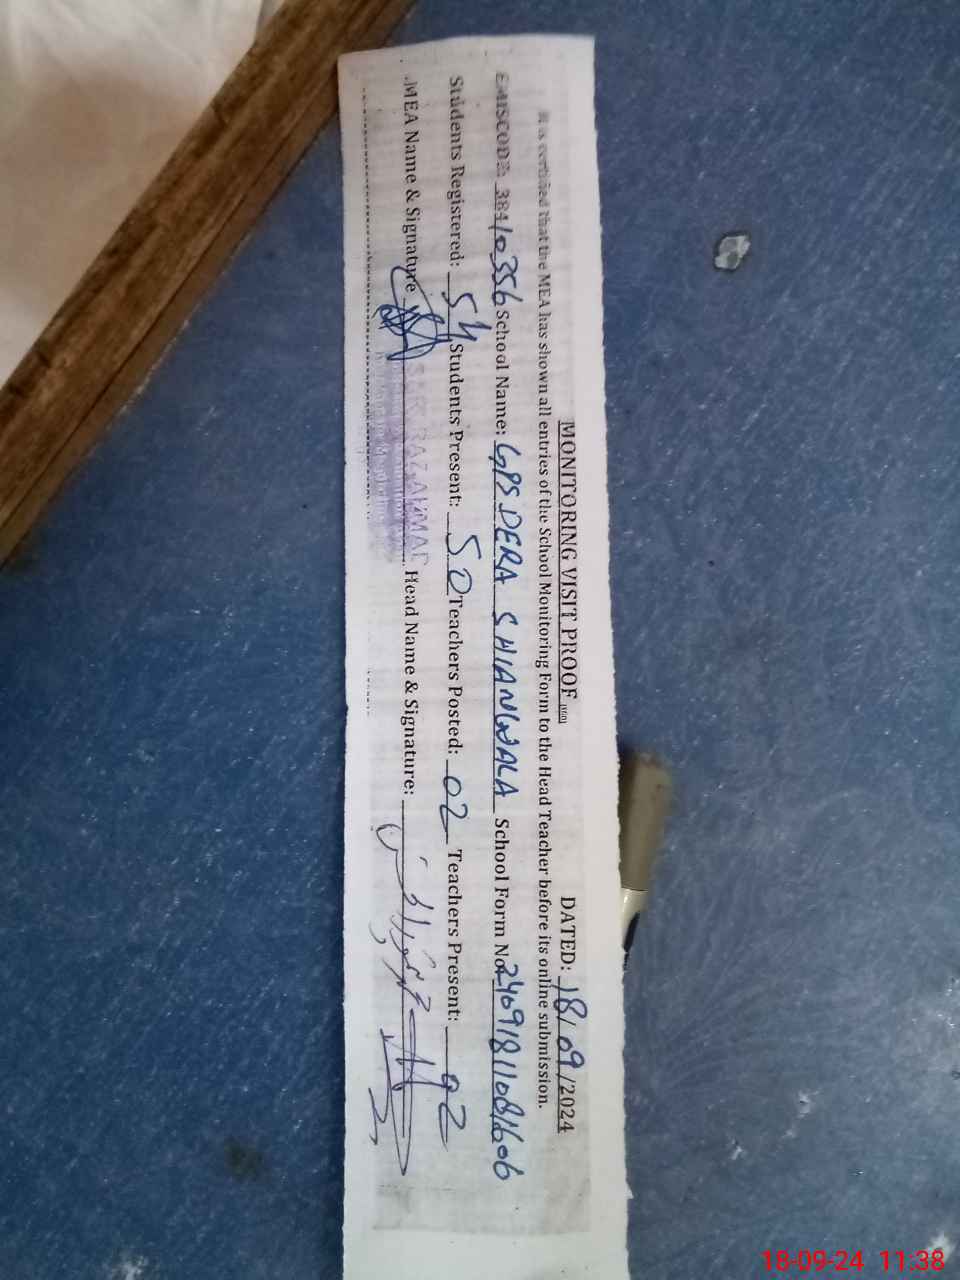 MONITORING VISIT PROOF DATED: 18/09/2024
It is certified that the MEA has shown all entries of the School Monitoring Form to the Head Teacher before its online submission.
EMISCODE: 38410356 School Name: GPS DERA SHIANWALA School Form No. 24091811081606
Students Registered: 54 Students Present: 50 Teachers Posted: 02 Teachers Present: 02
MEA Name & Signature Head Name & Signature:
18-09-24 11:38